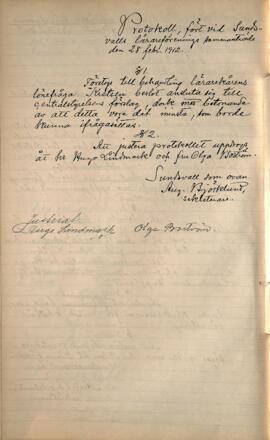 Protokoll, fört vid Sunds-
valls lärareförenings sammanträde
den 28 febr. 1912.
§1.
Företogs till behandling lärarekårens
lönefråga. Kretsen beslöt ansluta sig till
centralstyrelsens förslag, dock med betonande
av att detta vore det minsta, som borde
kunna ifrågasättas.
§2.
Att justera protokollet uppdrogs
åt hr Hugo Lindmark och fru Olga Boström.
Sundsvall som ovan
Aug. Björklund,
sekreterare.
Justerat.
Hugo Lindmark Olga Boström